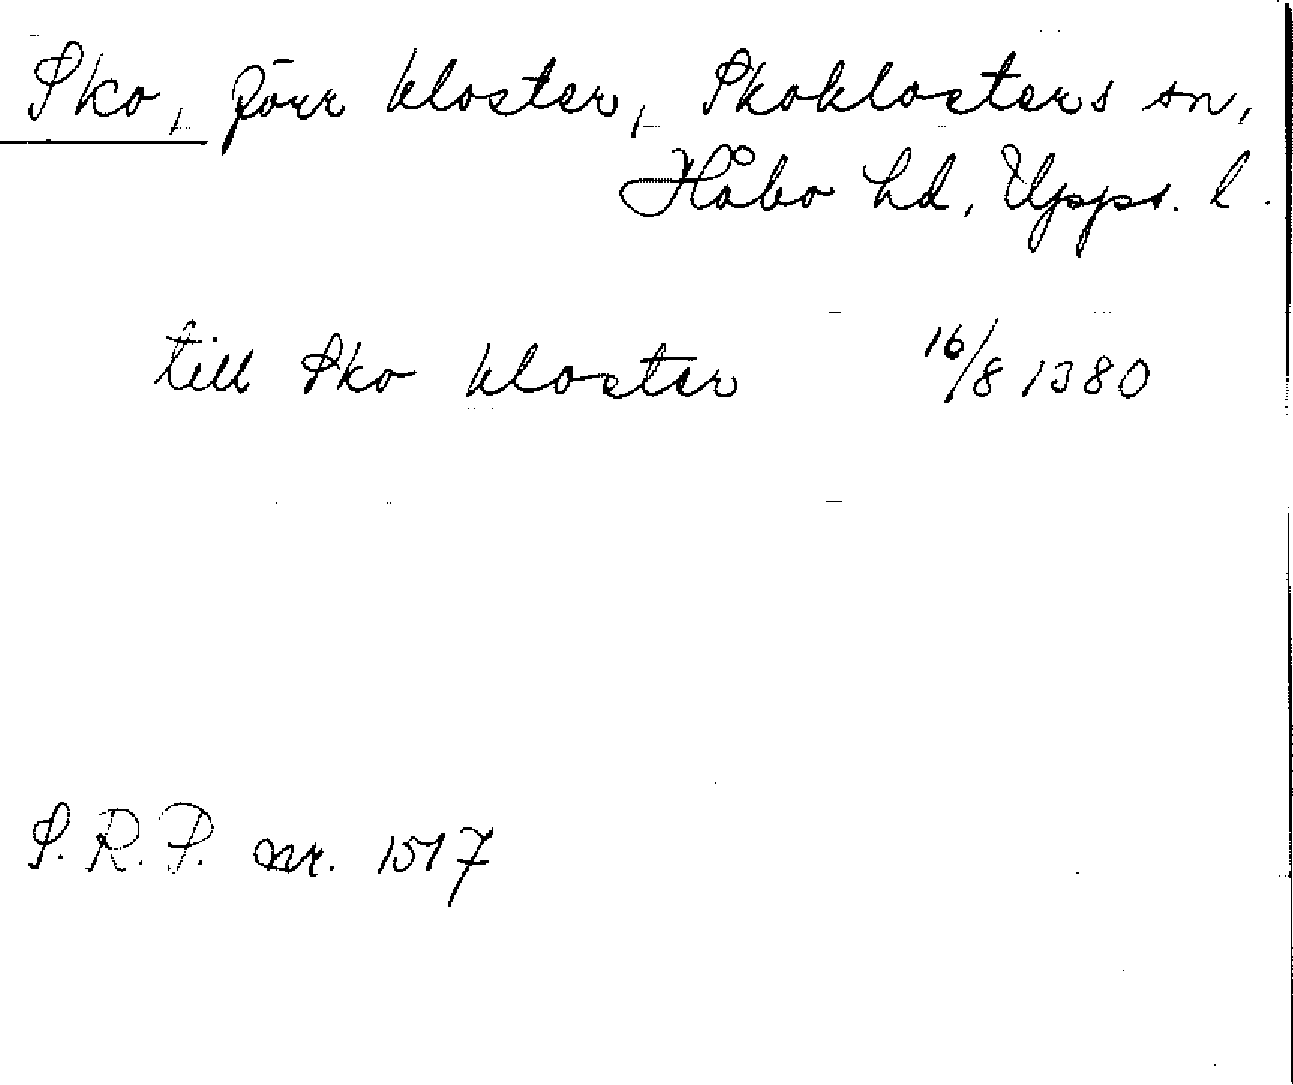 Sko, förr kloster, Skoklosters sn,
Håbo hd, Upps. l.
till Sko kloster 16/8 1380
S.R.P. nr. 1517